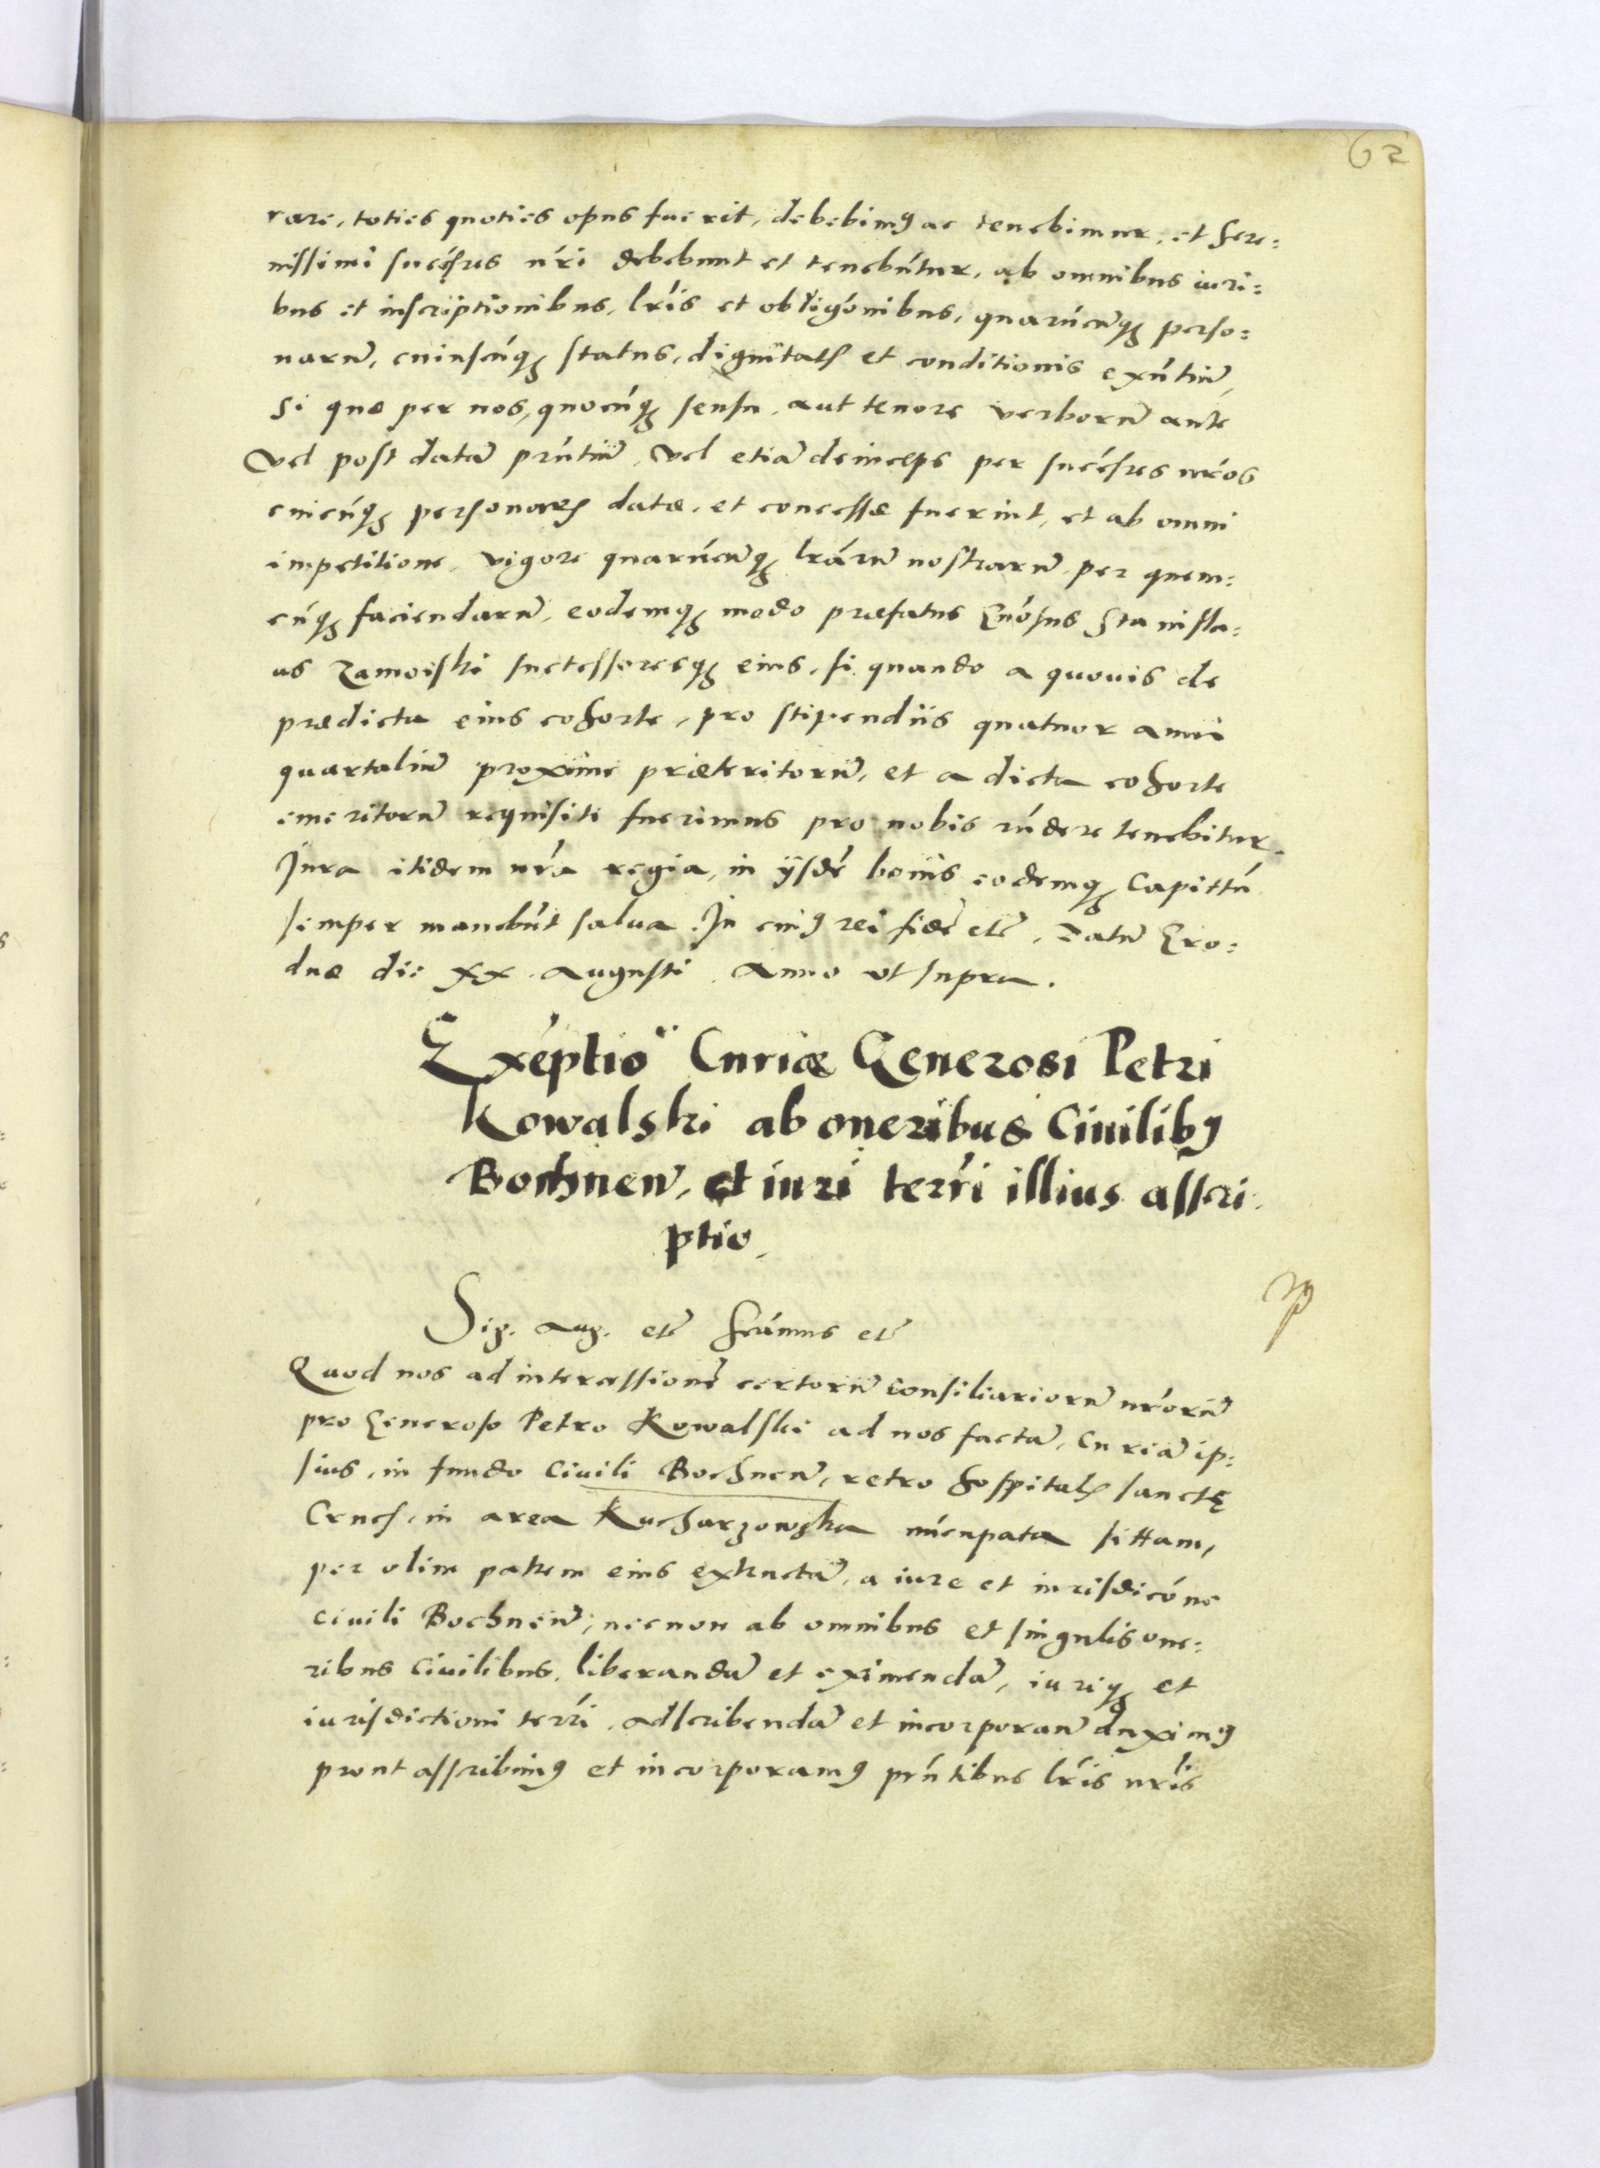 62
rare, toties quoties opus fuerit, debebimꝰ ac tenebimur, et Sere:
nissimi succéssres nr̃i debebunt et tenebũtur, ab omnibus iuri:
bus et inscriptionibus, lr̃is et obligõnibus, quarũcunqꝫ perso:
narũ, cuiuscũqꝫ status, dignitatis et conditionis exñtiũ,
Si quæ per nos, quocũqꝫ sensu, aut tenore verborũ ante
vel post datã prñtiũ, vel etiã deinceps per succéssres nr̃os
cuicũqꝫ personarꝫ datæ, et concessæ fuerint, et ab omni
impetitione, vigore quarũcunqꝫ lr̃arũ nostrarũ per quem:
cũqꝫ faciendarũ, eodemqꝫ modo præfatus Gñosus Stanisla:
us Zamoiski successoresqꝫ eius, si quando a quovis de
prædicta eius cohorte, pro stipendiis quatuor anni
quartaliũ proxime præteritorũ, et a dicta cohorte
emeritorũ requisiti fuerimus pro nobis rñdere tenebitur.
Jura itidem nr̃a regia, in ijsdẽ bonis eodemqꝫ Capittũ
semper manebũt salua. In cuiꝰ rei fidẽ etc̃. Datũ Gro:
dnæ die xx. Augusti. Anno ut supra.
Exéptio Curiæ Generosi Petri
Kowalski ab oneribus Ciuilibꝰ
Bochnen̄, et iuri terr̃i illius asscri:
ptio.
Sig. Aug. etc̃ Scũmus etc̃
Quod nos ad intercessionẽ certorũ consiliariorũ nr̃orũ
pro Generoso Petro Kowalski ad nos factã, Curiã ip:
sius, in fundo Ciuili Bochnen̄, retro hospitale sanctę
Crucis, in area Kucharzowska nũcupata sittam,
per olim patrem eius extructã, a iure et iurisdicõne
Ciuili Bochnen̄, necnon ab omnibus et singulis one:
ribus Ciuilibus, liberandũ et eximendã, iuriqꝫ et
iurisdictioni terr̃i, adscribendã et incorporan̄ duximꝰ
prout asscribimꝰ et incorporamꝰ prñtibus lr̃is nr̃is